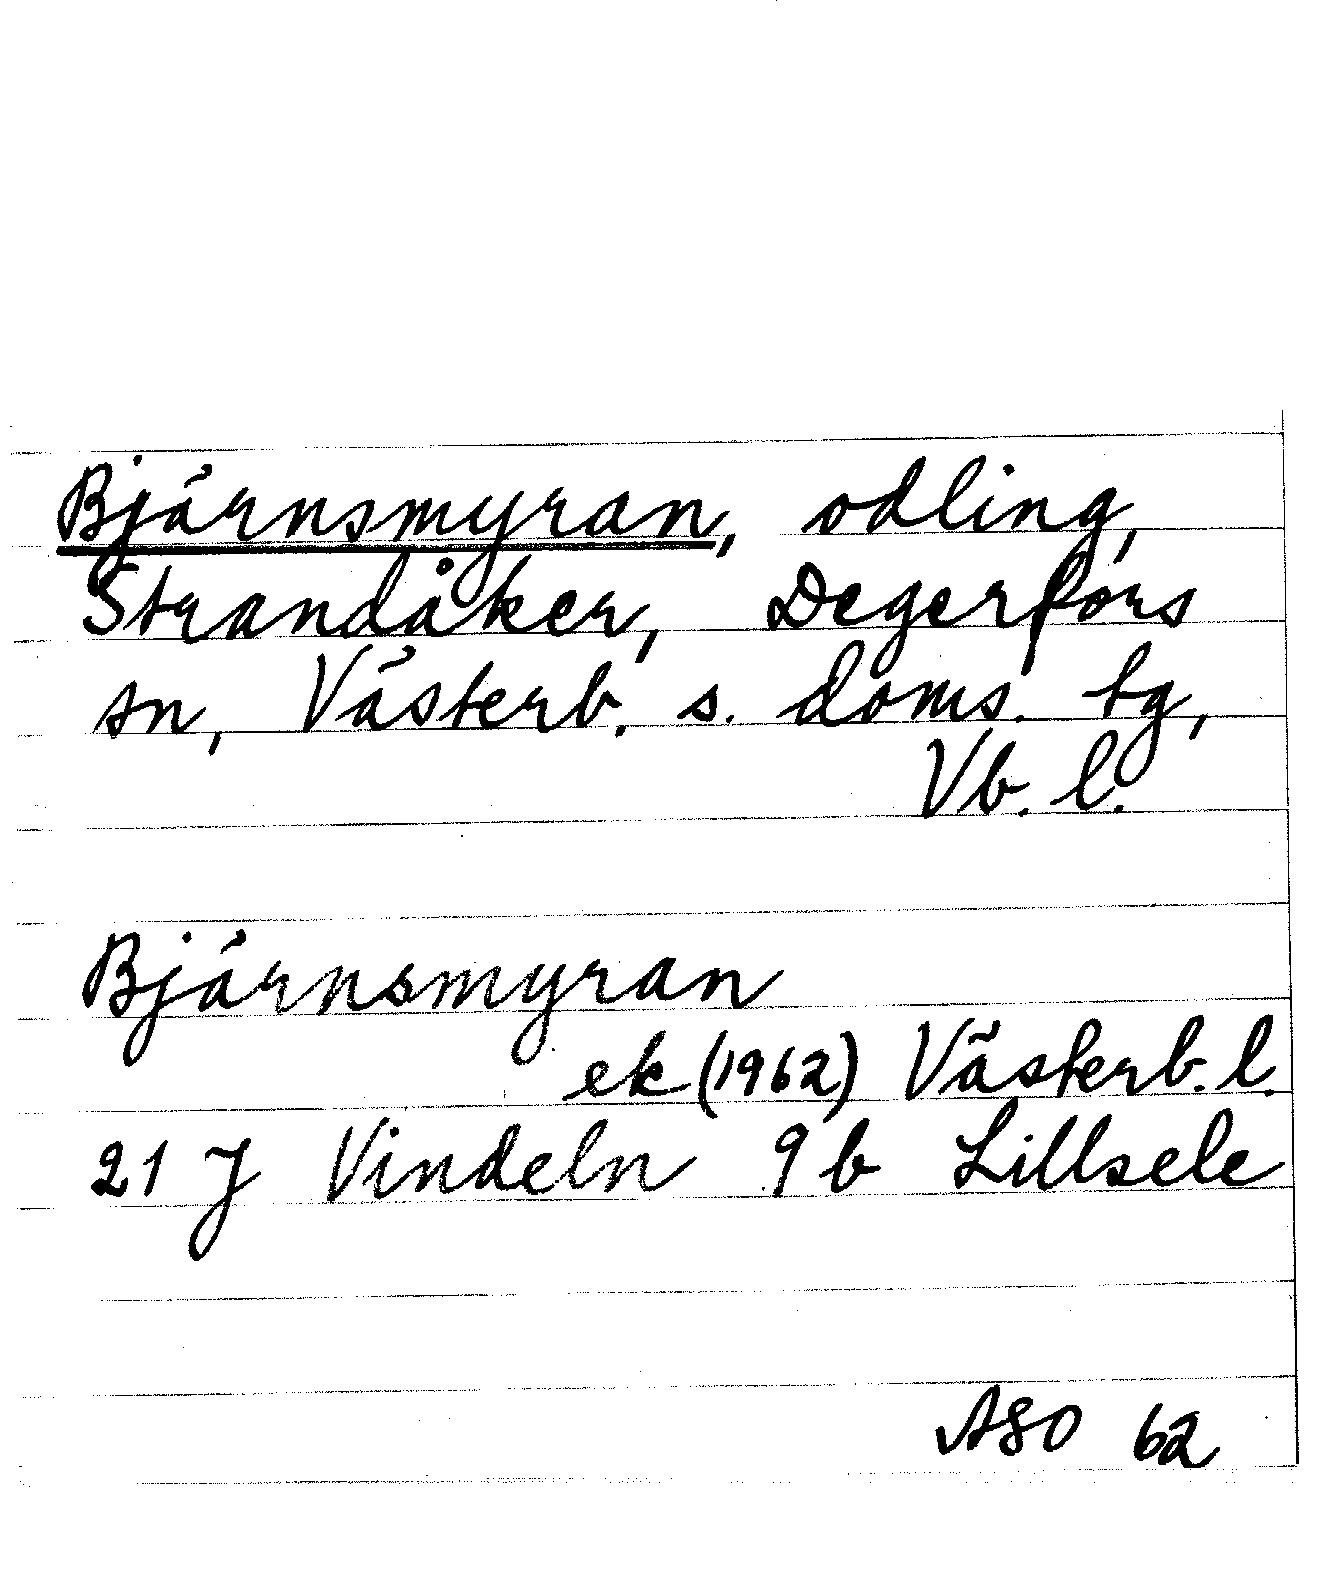 Bjärnsmyran, odling,
Strandåker, Degerfors
sn, Västerb. s. doms. tg,
Vb. l.
Bjärnsmyran
ek (1962) Västerb. l.
21 J Vindeln 9 b Lillsele
ASO 62